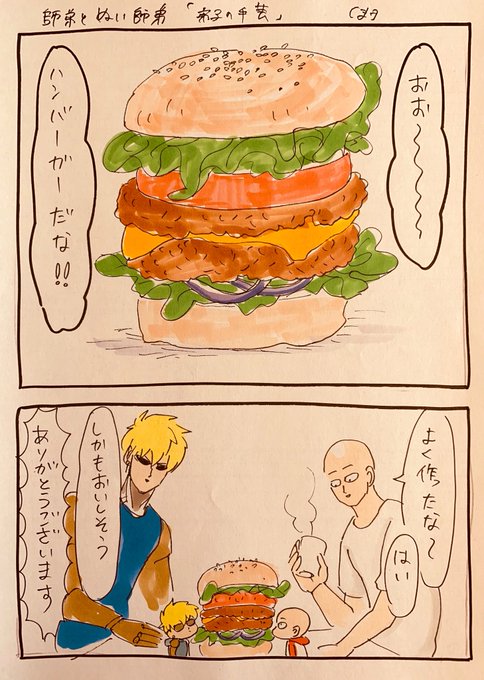 師弟とぬい師弟「弟子の手芸」
おお〜〜〜〜〜
ハンバーガーだな!!
よく作ったな〜
はい
しかもおいしそう
ありがとうございます